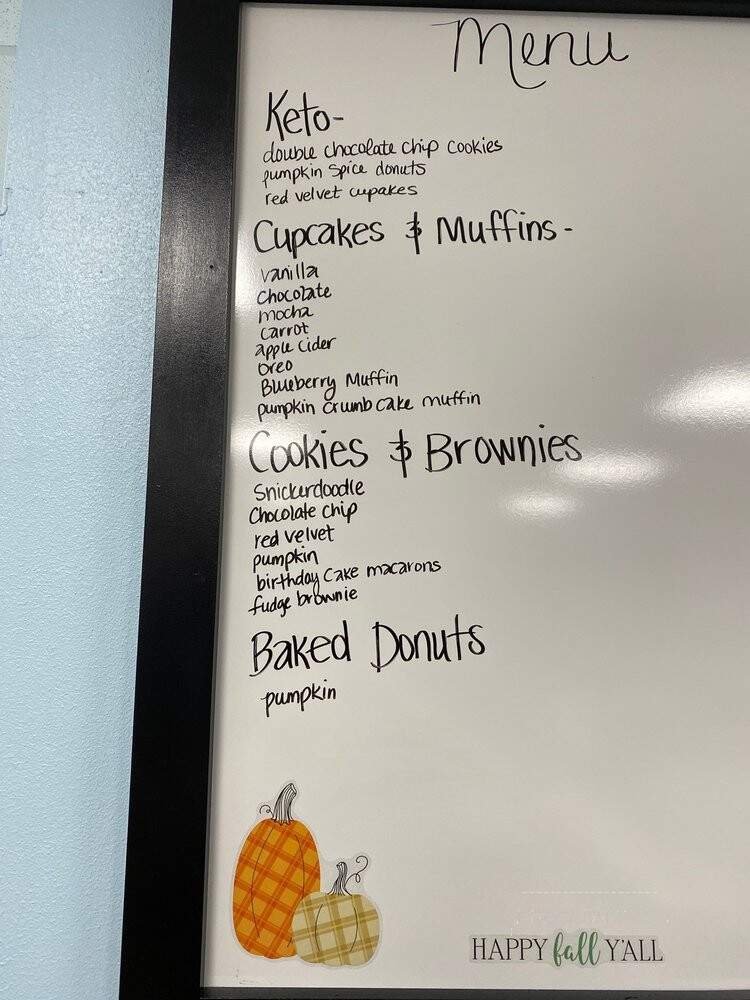 Menu
Keto-
double chocolate chip cookies
pumpkin spice donuts
red velvet cupakes
Cupcakes & Muffins-
vanilla
Chocolate
mocha
carrot
apple cider
oreo
Blueberry Muffin
pumpkin crumb cake muffin
Cookies & Brownies
Snickerdoodle
Chocolate chip
red velvet
pumpkin
birthday cake macarons
fudge brownie
Baked Donuts
pumpkin
HAPPY fall Y'ALL